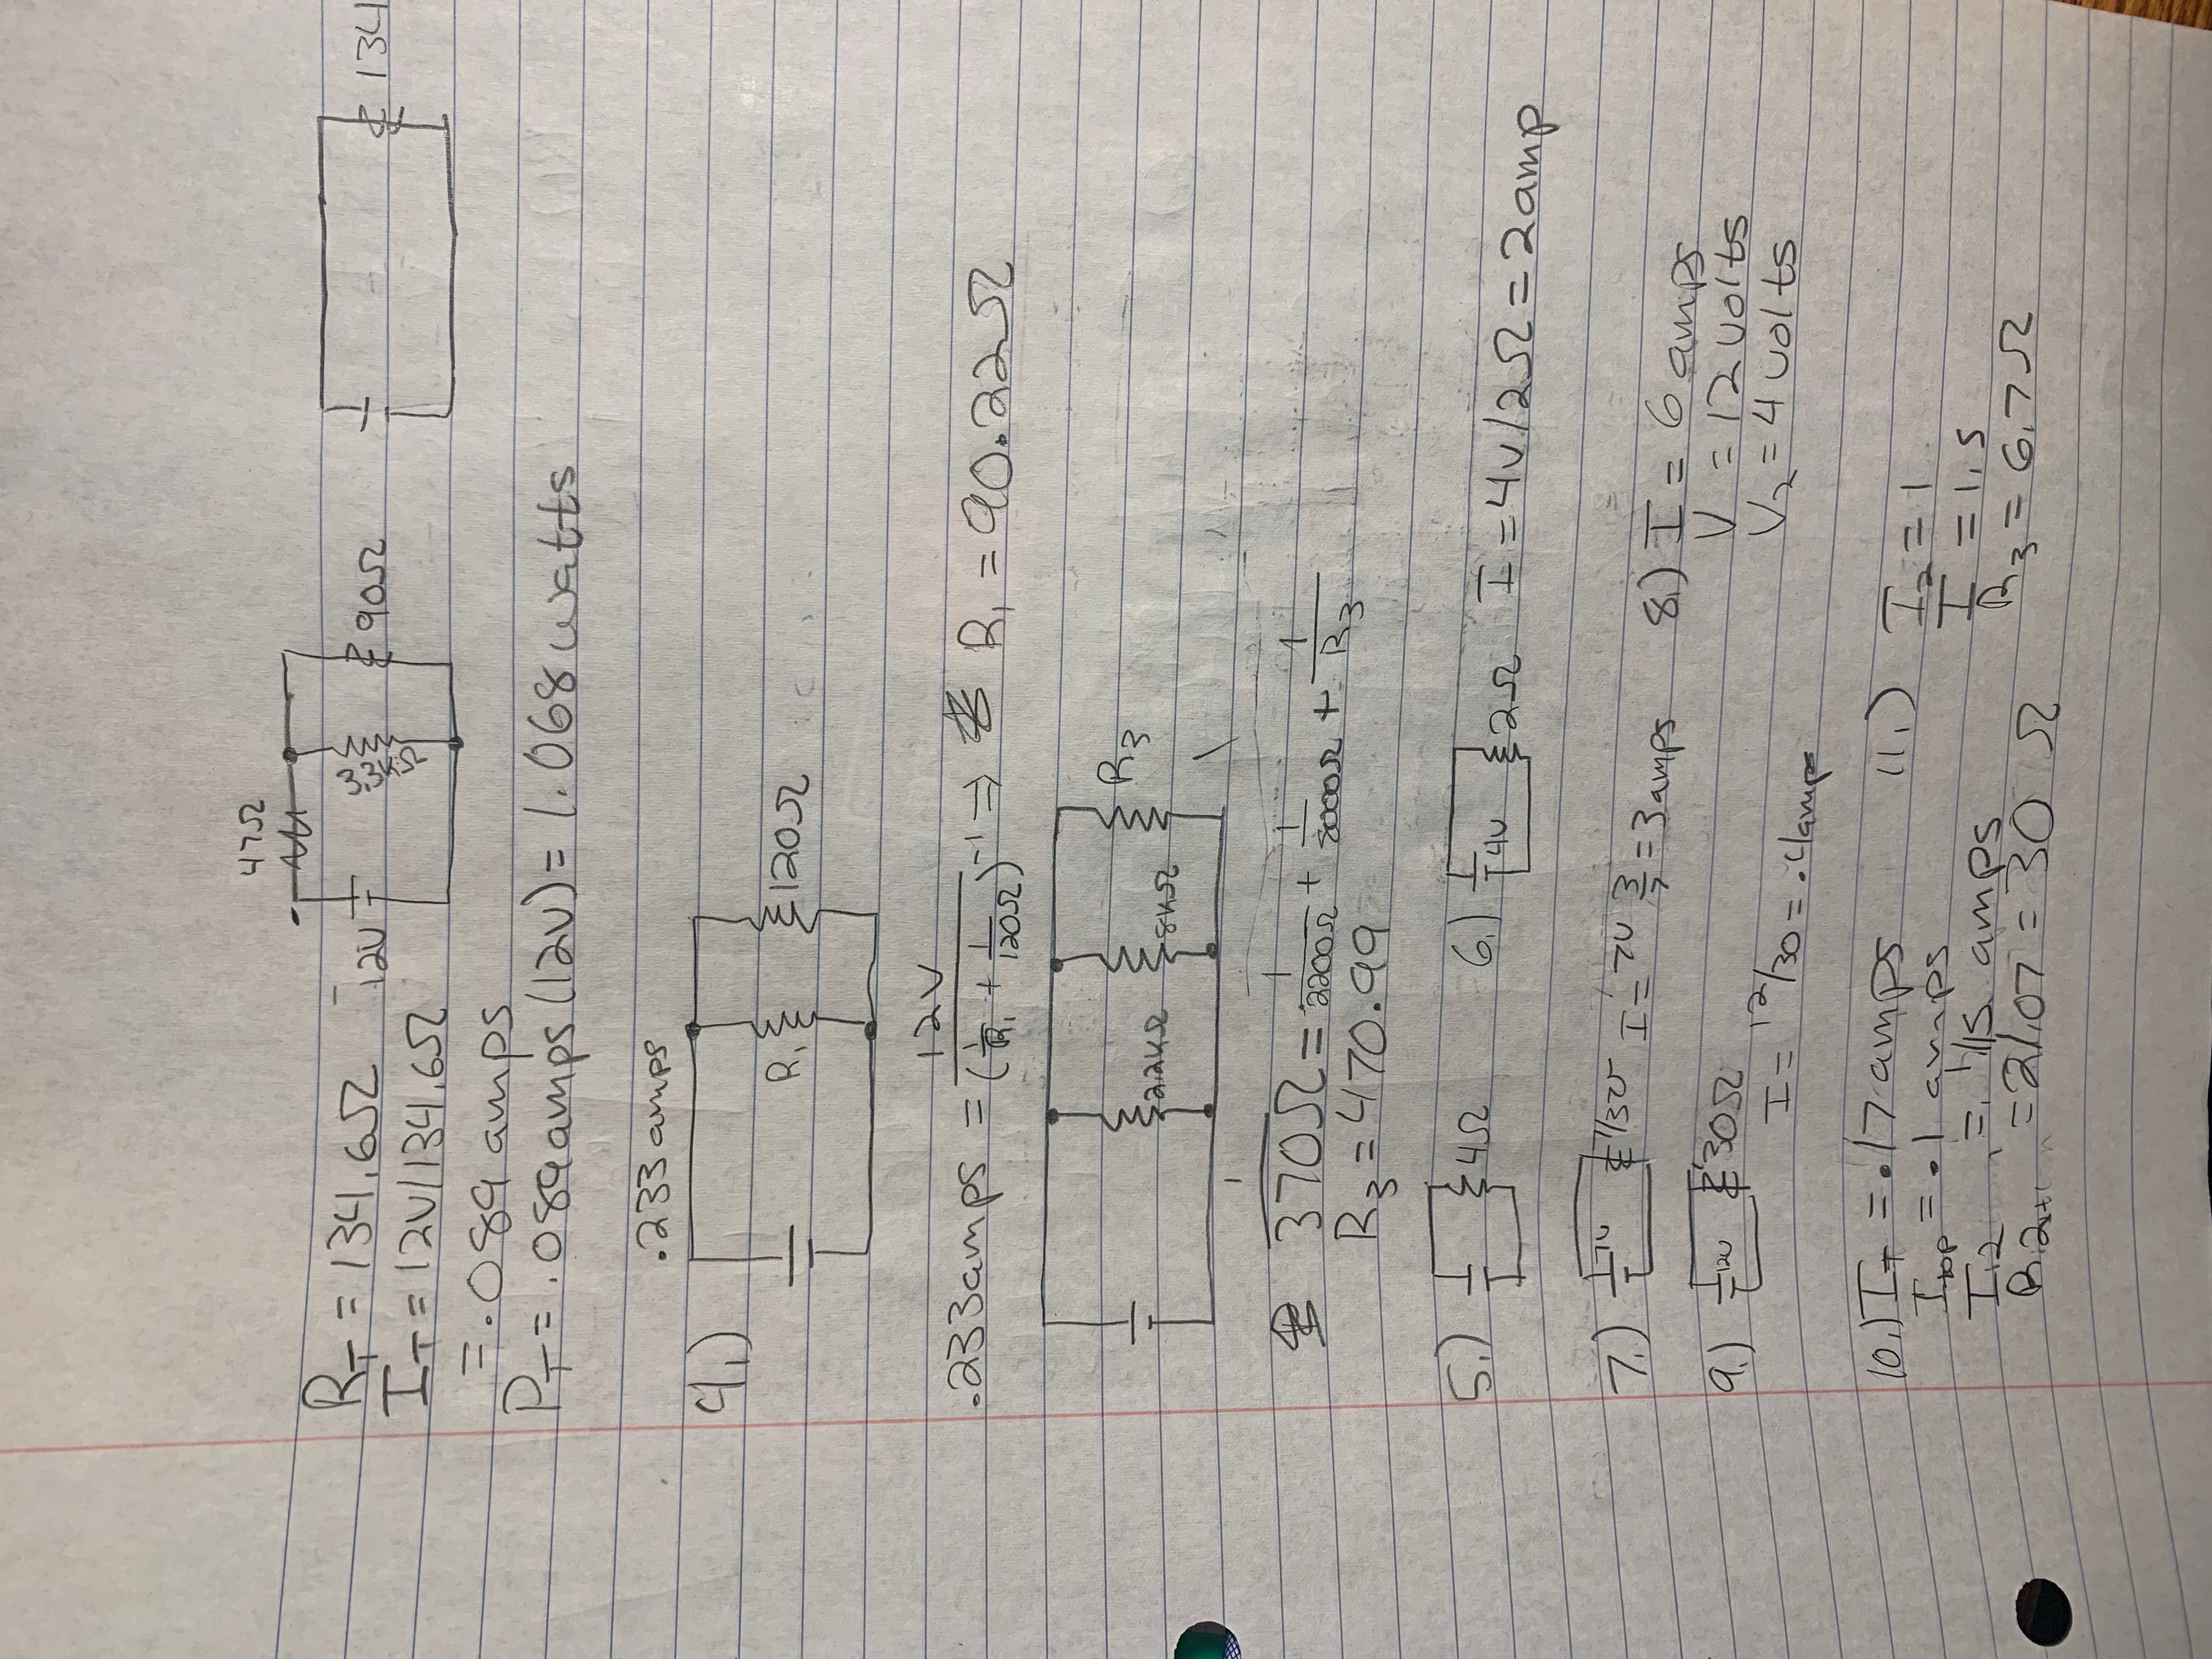 47Ω
R_T = 134.6Ω 12V 3.3kΩ 90Ω 134
I_T = 12V/134.6Ω
= .089 amps
P_T = .089amps (12V) = 1.068 watts
.233 amps
9.)
R₁ 120Ω
.233amps = 12V/(1/R₁ + 1/120Ω)⁻¹ ⇒ R₁ = 90.22Ω
2.2kΩ 8kΩ R₃
1/370Ω = 1/2200Ω + 1/8000Ω + 1/R₃
R₃ = 470.99
5.) 4Ω 6.) 4V 2Ω I = 4V/2Ω = 2amp
7.) 7V 7/3Ω I = 7V 3/7 = 3 amps 8.) I = 6 amps
V = 12 volts
V₂ = 4 volts
9.) 12V 30Ω
I = 12/30 = .4amps
10.) I_T = .17 amps 11.) I₂ = 1
I_top = .1 amps I = 1.5
= 1/15 amps R₃ = 6.7Ω
= 2/.07 = 30 Ω